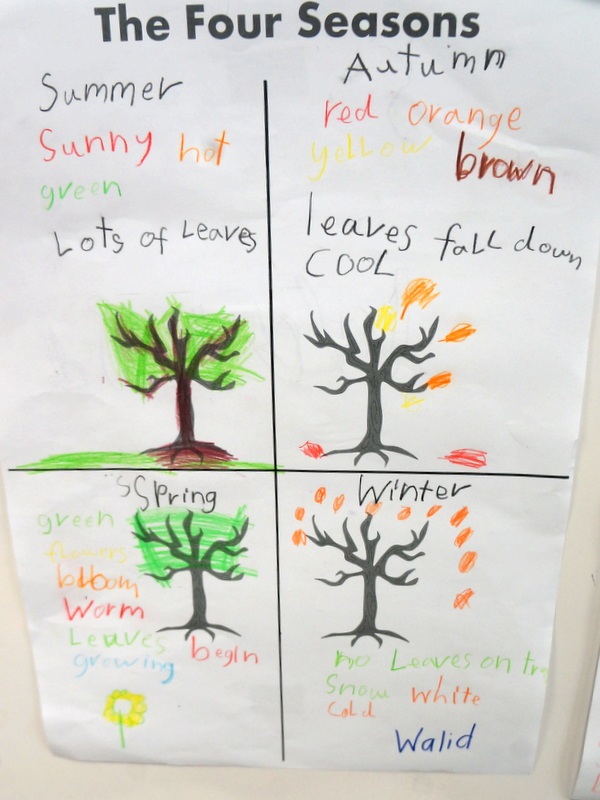 The Four Seasons
Summer
Sunny hot
green
Lots of Leaves
Autumn
red orange
yellow brown
leaves fall down
COOL
sSpring
green
flowers
bloom
Worm
Leaves begin
growing
Winter
no Leaves on tre
Snow white
Cold
Walid